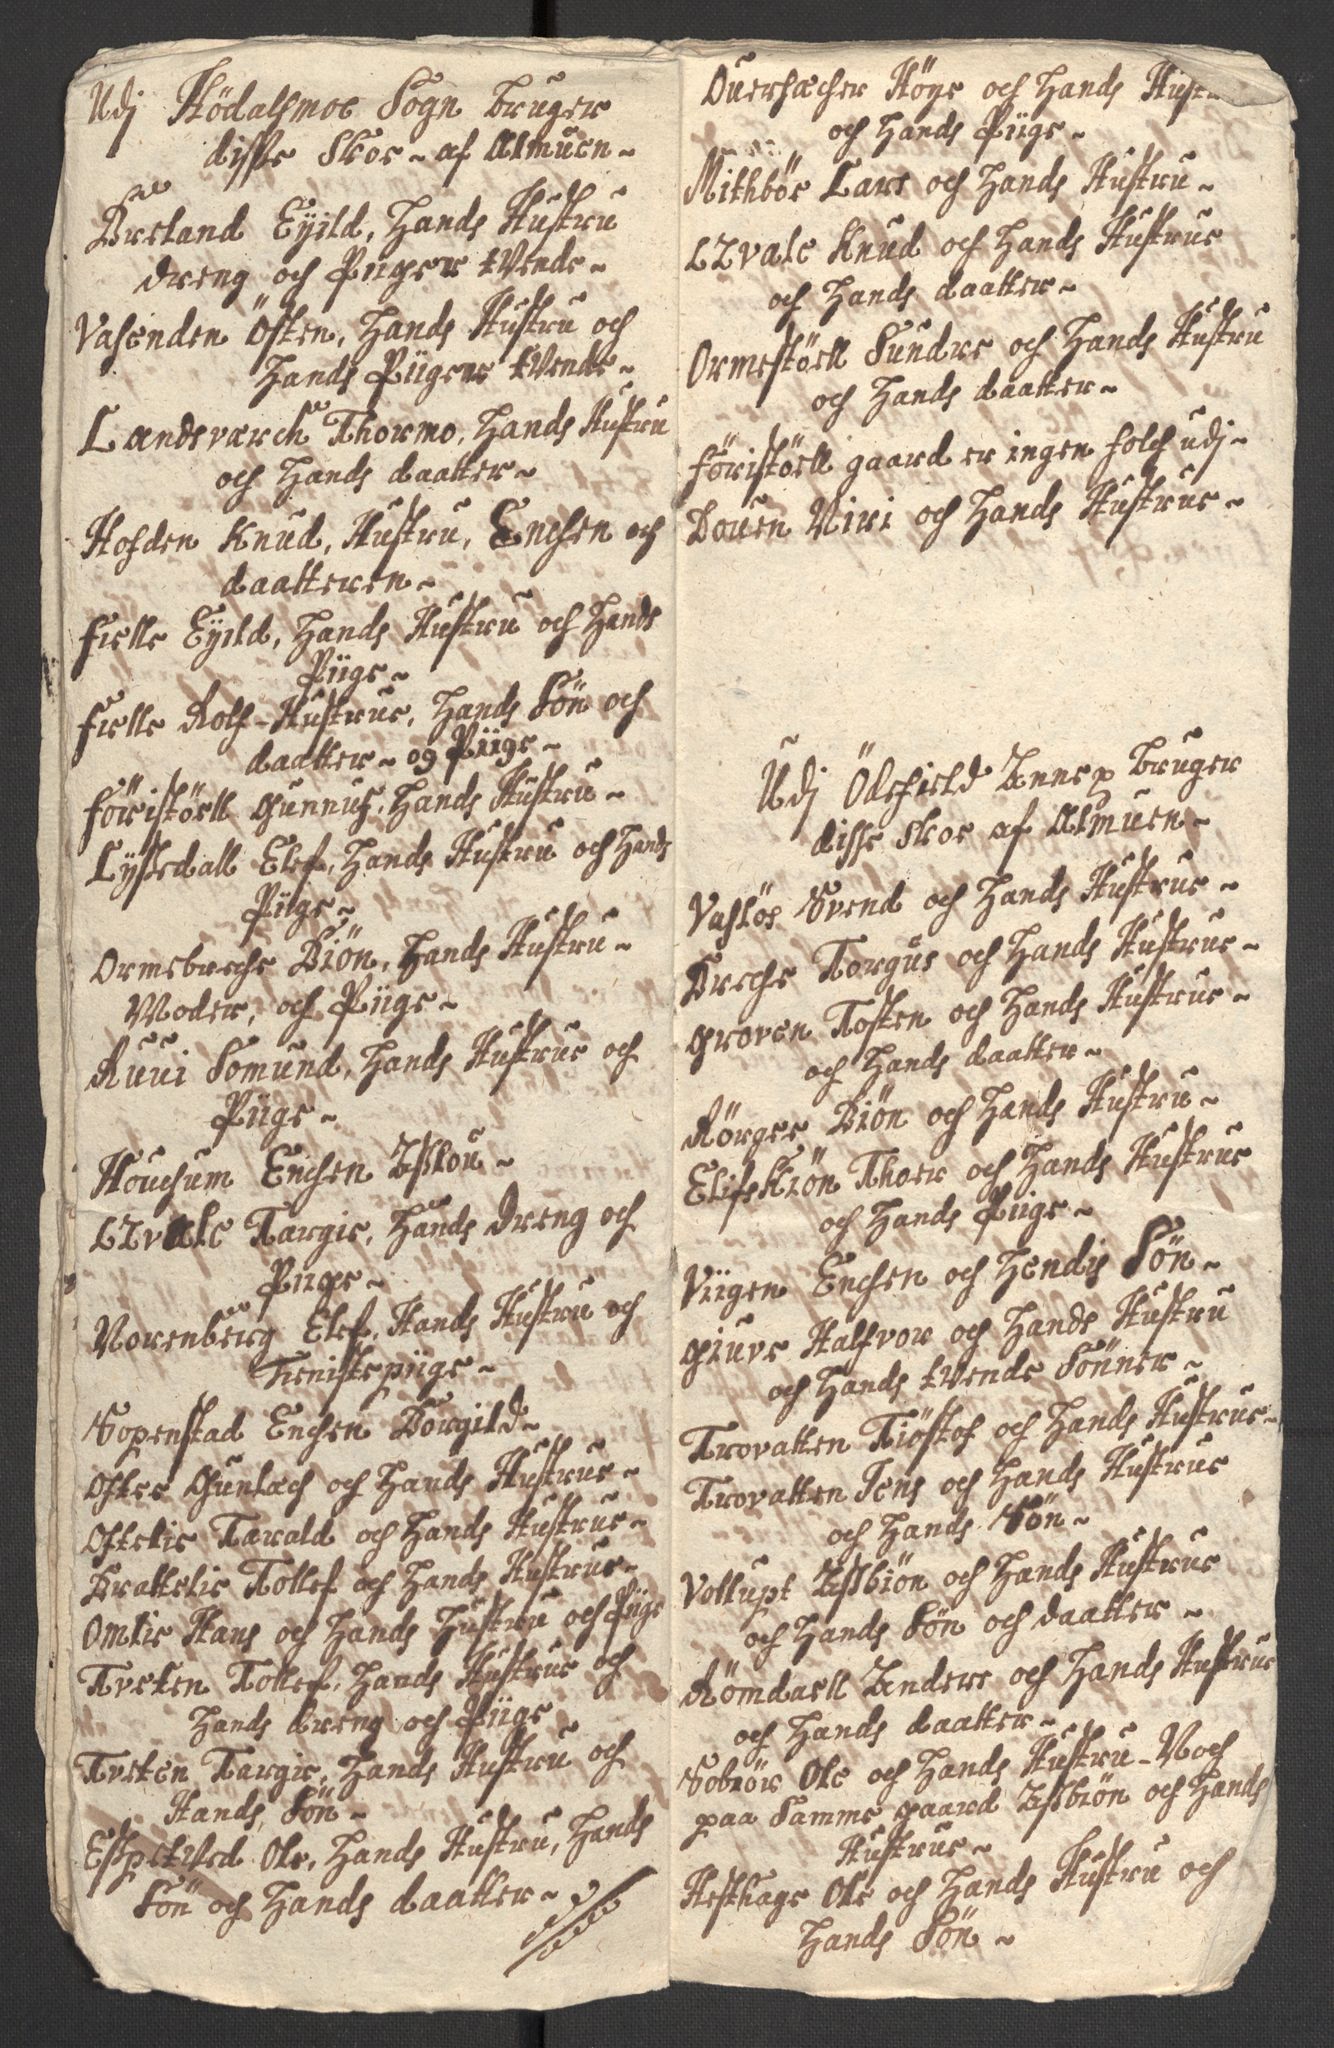 Udj Hödalsmoe Sogn bruger
disse Skoe ~ af Almuen ~
Breland Eyild, Hands Hustru
dreng og Piiger tvende ~
Vasenden Östen, Hands Hustru och
Hands Piigere tvende ~
Landsværch Thormo, Hands Hustru
och Hands daatter ~
Hofden Knud, Hustru, Enchen och
daatteren ~
Fielle Eyild, Hands Hustru och Hands
Piige ~
Fielle Rolf - Hustrue, Hands Sön och
daatter ~ og Piige ~
Föristöell Gunnuf, Hands Hustru ~
Lyssedall Elef, Hands Hustru och Hands
Piige ~
Ormebreche Biön, Hands Hustru ~
Moder, och Piige ~
Ruui Somund, Hands Hustrue och
Piige ~
Houchum Enchen Aslou ~
Qvale Targie, Hands dreng och
Piige ~
Norenberg Elef, Hands Hustru och
Tienistepiige ~
Sopenstad Enchen Borgild ~
Oftee Gunlæch och Hands Hustrue ~
Oftelie Tarald och Hands Hustrue ~
Brattelie Tollef och Hands Hustrue ~
Omlie Hans och Hands Hustru och Piige
Tveten Tollef, Hands Hustrue och
Hands dreng och Piige
Tveten Targie, Hands Hustru och
Hands Sön ~
Espetved Ole, Hands Hustru, Hands
Sön och Hands daatter ~
Ouersæcher Höye och Hands
och Hands Piige ~
Mithböe Lars och Hands Hustru ~
Qvale Knud och Hands Hustrue
och Hands daatter ~
Ormestöell Sundre och Hands Hustru
och Hands daatter ~
Föristöell gaard er ingen folch udj ~
Douen Niri och Hands Hustrue ~
Udj Ödefield Annex bruger
disse Skoe af Almuen ~
Vaslöe Svend och Hands Hustrue ~
Breche Torgus och Hands Hustrue ~
Groven Tosten och Hands Hustrue ~
och Hands daatter ~
Rörgee Biön och Hands Hustru ~
Elifskiön Thoer och Hands Hustrue
och Hands Piige ~
Viigen Enchen och Hendis Sön ~
Giuve Halfvor och Hands Hustru
och Hands tvende Sönner ~
Trovatten Tiöstof och Hands Hustrue ~
Trovatten Jens och Hands Hustrue
och Hands Sön ~
Vollupt Asbiön och Hands Hustrue
och Hands Sön och daatter ~
Römdaell Anders och Hands Hustrue
och Hands daatter ~
Sobrör Ole och Hands Hustru - Noch
paa Samme gaard Asbiön och Hands
Hustrue ~
Hesthage Ole och Hands Hustru och
Hands Sön ~